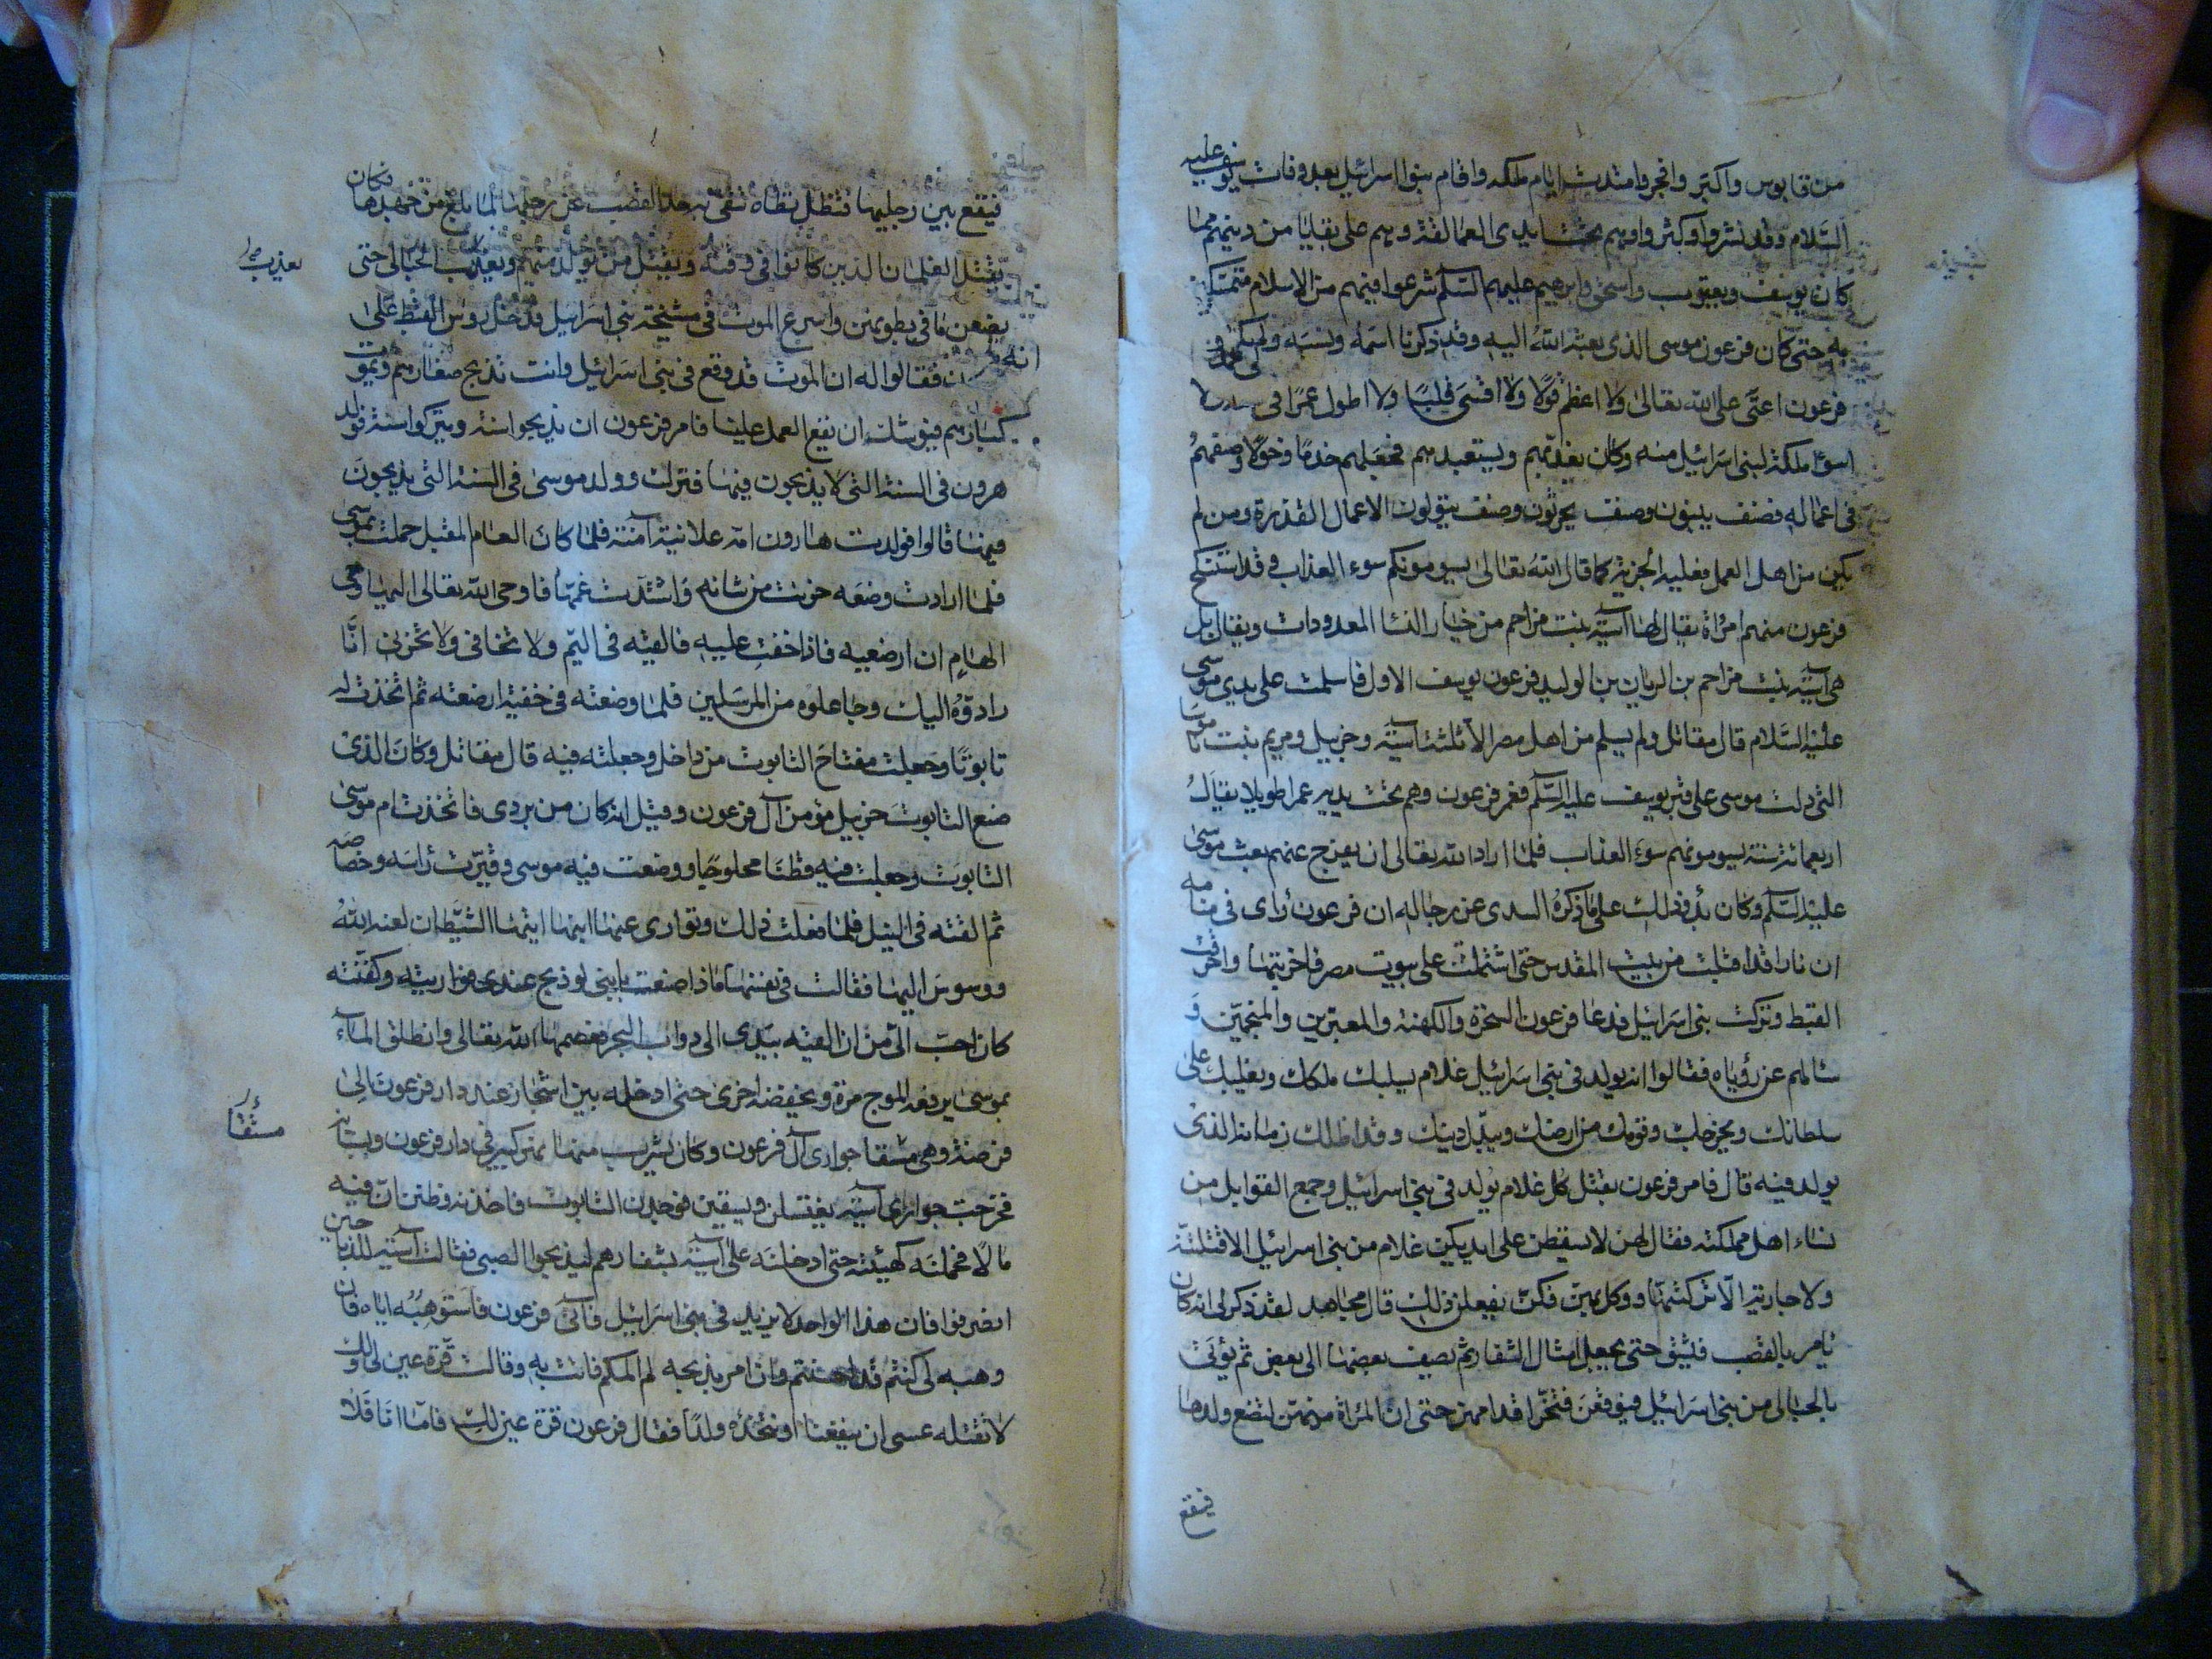 من قابوس واكبر وافجر وامتدت ايام ملكه واقام بنوا اسرائيل بعد وفات يوسف عليه
السلام وقد نشروا وكثروا وهم تحت ايدى العمالقة وهم على بقايا من دينهم مما
كان يوسف ويعقوب واسحق وابرهيم عليهم السلم شرعوا فيهم من الاسلام متمسكين
به حتى كان فرعون موسى الذى بعثه الله اليه وقد ذكرنا اسمه ونسبه ولم يكن
فرعون اعتى على الله تعالى ولا اعظم قولا ولا اقسى قلبا ولا اطول عمرا فى ملكه ولا
اسوا ملكة لبنى اسرائيل منه وكان يعذبهم ويستعبدهم فجعلهم خدما وخولا وصنفهم
فى اعماله فصنف يبنون وصنف يحرثون وصنف يتولون الاعمال القذرة ومن لم
يكن من اهل العمل فعليه الجزية كما قال الله تعالى يسومونكم سوء العذاب وقد استنكح
فرعون منهم امراة يقال لها آسية بنت مزاحم من خيار النسا المعدودات ويقال بل
هى آسية بنت مزاحم بن الريان بن الوليد فرعون يوسف الاول فاسلمت على يدى موسى
عليه السلام قال مقاتل ولم يسلم من اهل مصر الا ثلثة آسية وحزبيل ومريم بنت ناموسا
التى دلت موسى على قبر يوسف عليه السلم فعمر فرعون وهم تحت يديه عمرا طويلا يقال
اربعمائة سنة يسومونهم سوء العذاب فلما اراد الله تعالى ان يفرج عنهم بعث موسى
عليه السلم وكان بدؤ ذلك على ما ذكره السدى عن رجاله ان فرعون رأى فى منامه
ان نارا قد اقبلت من بيت المقدس حتى اشتملت على بيوت مصر فاخربتها واحرقت
القبط وتركت بنى اسرائيل فدعا فرعون السحرة والكهنة والمعبرين والمنجمين و
سالهم عن رؤياه فقالوا انه يولد فى بنى اسرائيل غلام يسلبك ملكك ويغلبك على
سلطانك ويخرجك وقومك من ارضك ويبدل دينك وقد اظلك زمانه الذى
يولد فيه قال فامر فرعون بقتل كل غلام يولد فى بنى اسرائيل وجمع القوابل من
نساء اهل مملكته فقال لهن لا يسقطن على ايديكن غلام من بنى اسرائيل الا قتلتنه
ولا جارية الا تركتنها ووكل بهن فكن يفعلن ذلك قال مجاهد لقد ذكر لى انه كان
يامر بالقصب فيشق حتى يجعل امثال الشفار ثم يصف بعضها الى بعض ثم يؤتى
بالحبالى من بنى اسرائيل فيوقفن فتحز اقدامهن حتى ان المراة منهن لتضع ولدها
فيقع
فيقع بين رجليها فتظل تطاه تتقى به حد القصب عن رجليها لما بلغ من جهدها فكان
يقتل الغلمان الذين كانوا فى وقته ويقتل من يولد منهم ويعذب الحبالى حتى
يعذب
يضعن ما فى بطونهن واسرع الموت فى مشيخة بنى اسرائيل فدخل روس القبط على
فقالوا له ان الموت قد وقع فى بنى اسرائيل وانت تذبح صغارهم ويموت
كبارهم فيوشك ان يقع العمل علينا فامر فرعون ان يذبحوا سنة ويتركوا سنة فولد
هرون فى السنة التى لا يذبحون فيها فترك وولد موسى فى السنة التى يذبحون
فيها قالوا فولدت هارون امه علانية آمنة فلما كان العام المقبل حملت بموسى
فلما ارادت وضعه حزنت من شانه واشتدت غمها فاوحى الله تعالى اليها وحى
الهام ان ارضعيه فاذا خفت عليه فالقيه فى اليم ولا تخافى ولا تحزنى انا
رادوه اليك وجاعلوه من المرسلين فلما وضعته فى خفية ارضعته ثم اتخذت له
تابوتا وجعلت مفتاح التابوت من داخل وجعلته فيه قال مقاتل وكان الذى
صنع التابوت حزبيل مؤمن آل فرعون وقيل انه كان من بردى فاتخذت ام موسى
التابوت وجعلت فيه قطنا محلوجا ووضعت فيه موسى وقيرت راسه وخصاصه
ثم القته فى النيل فلما فعلت ذلك وتوارى عنها ابنها اتيها الشيطان لعنه الله
ووسوس اليها فقالت فى نفسها ماذا صنعت بابنى لو ذبح عندى فواريته وكفنته
كان احب الى من ان القيه بيدى الى دواب البحر فعصمها الله تعالى وانطلق الماء
بموسى يرفعه الموج مرة ويخفضه اخرى حتى ادخله بين اشجار عند دار فرعون الى
فرضة وهى مستقا جوارى آل فرعون وكان يشرب منها نهر كبير فى دار فرعون وبستانه
مستقا
فخرجت جوارى آسية يغتسلن ويسقين فوجدن التابوت فاخذنه وظنن ان فيه
مالا فحملنه كهيئته حتى ادخلنه على آسية بشفارهم ليذبحوا الصبى فقالت آسية للذباحين
انصرفوا فان هذا الواحد لا يزيد فى بنى اسرائيل فآتى فرعون فاستوهبه اياه فان
وهبه لى كنتم قد احسنتم وان امر بذبحه لم المكم فاتت به وقالت قرة عين لى ولك
لا تقتله عسى ان ينفعنا او نتخذه ولدا فقال فرعون قرة عين لك فاما انا فلا